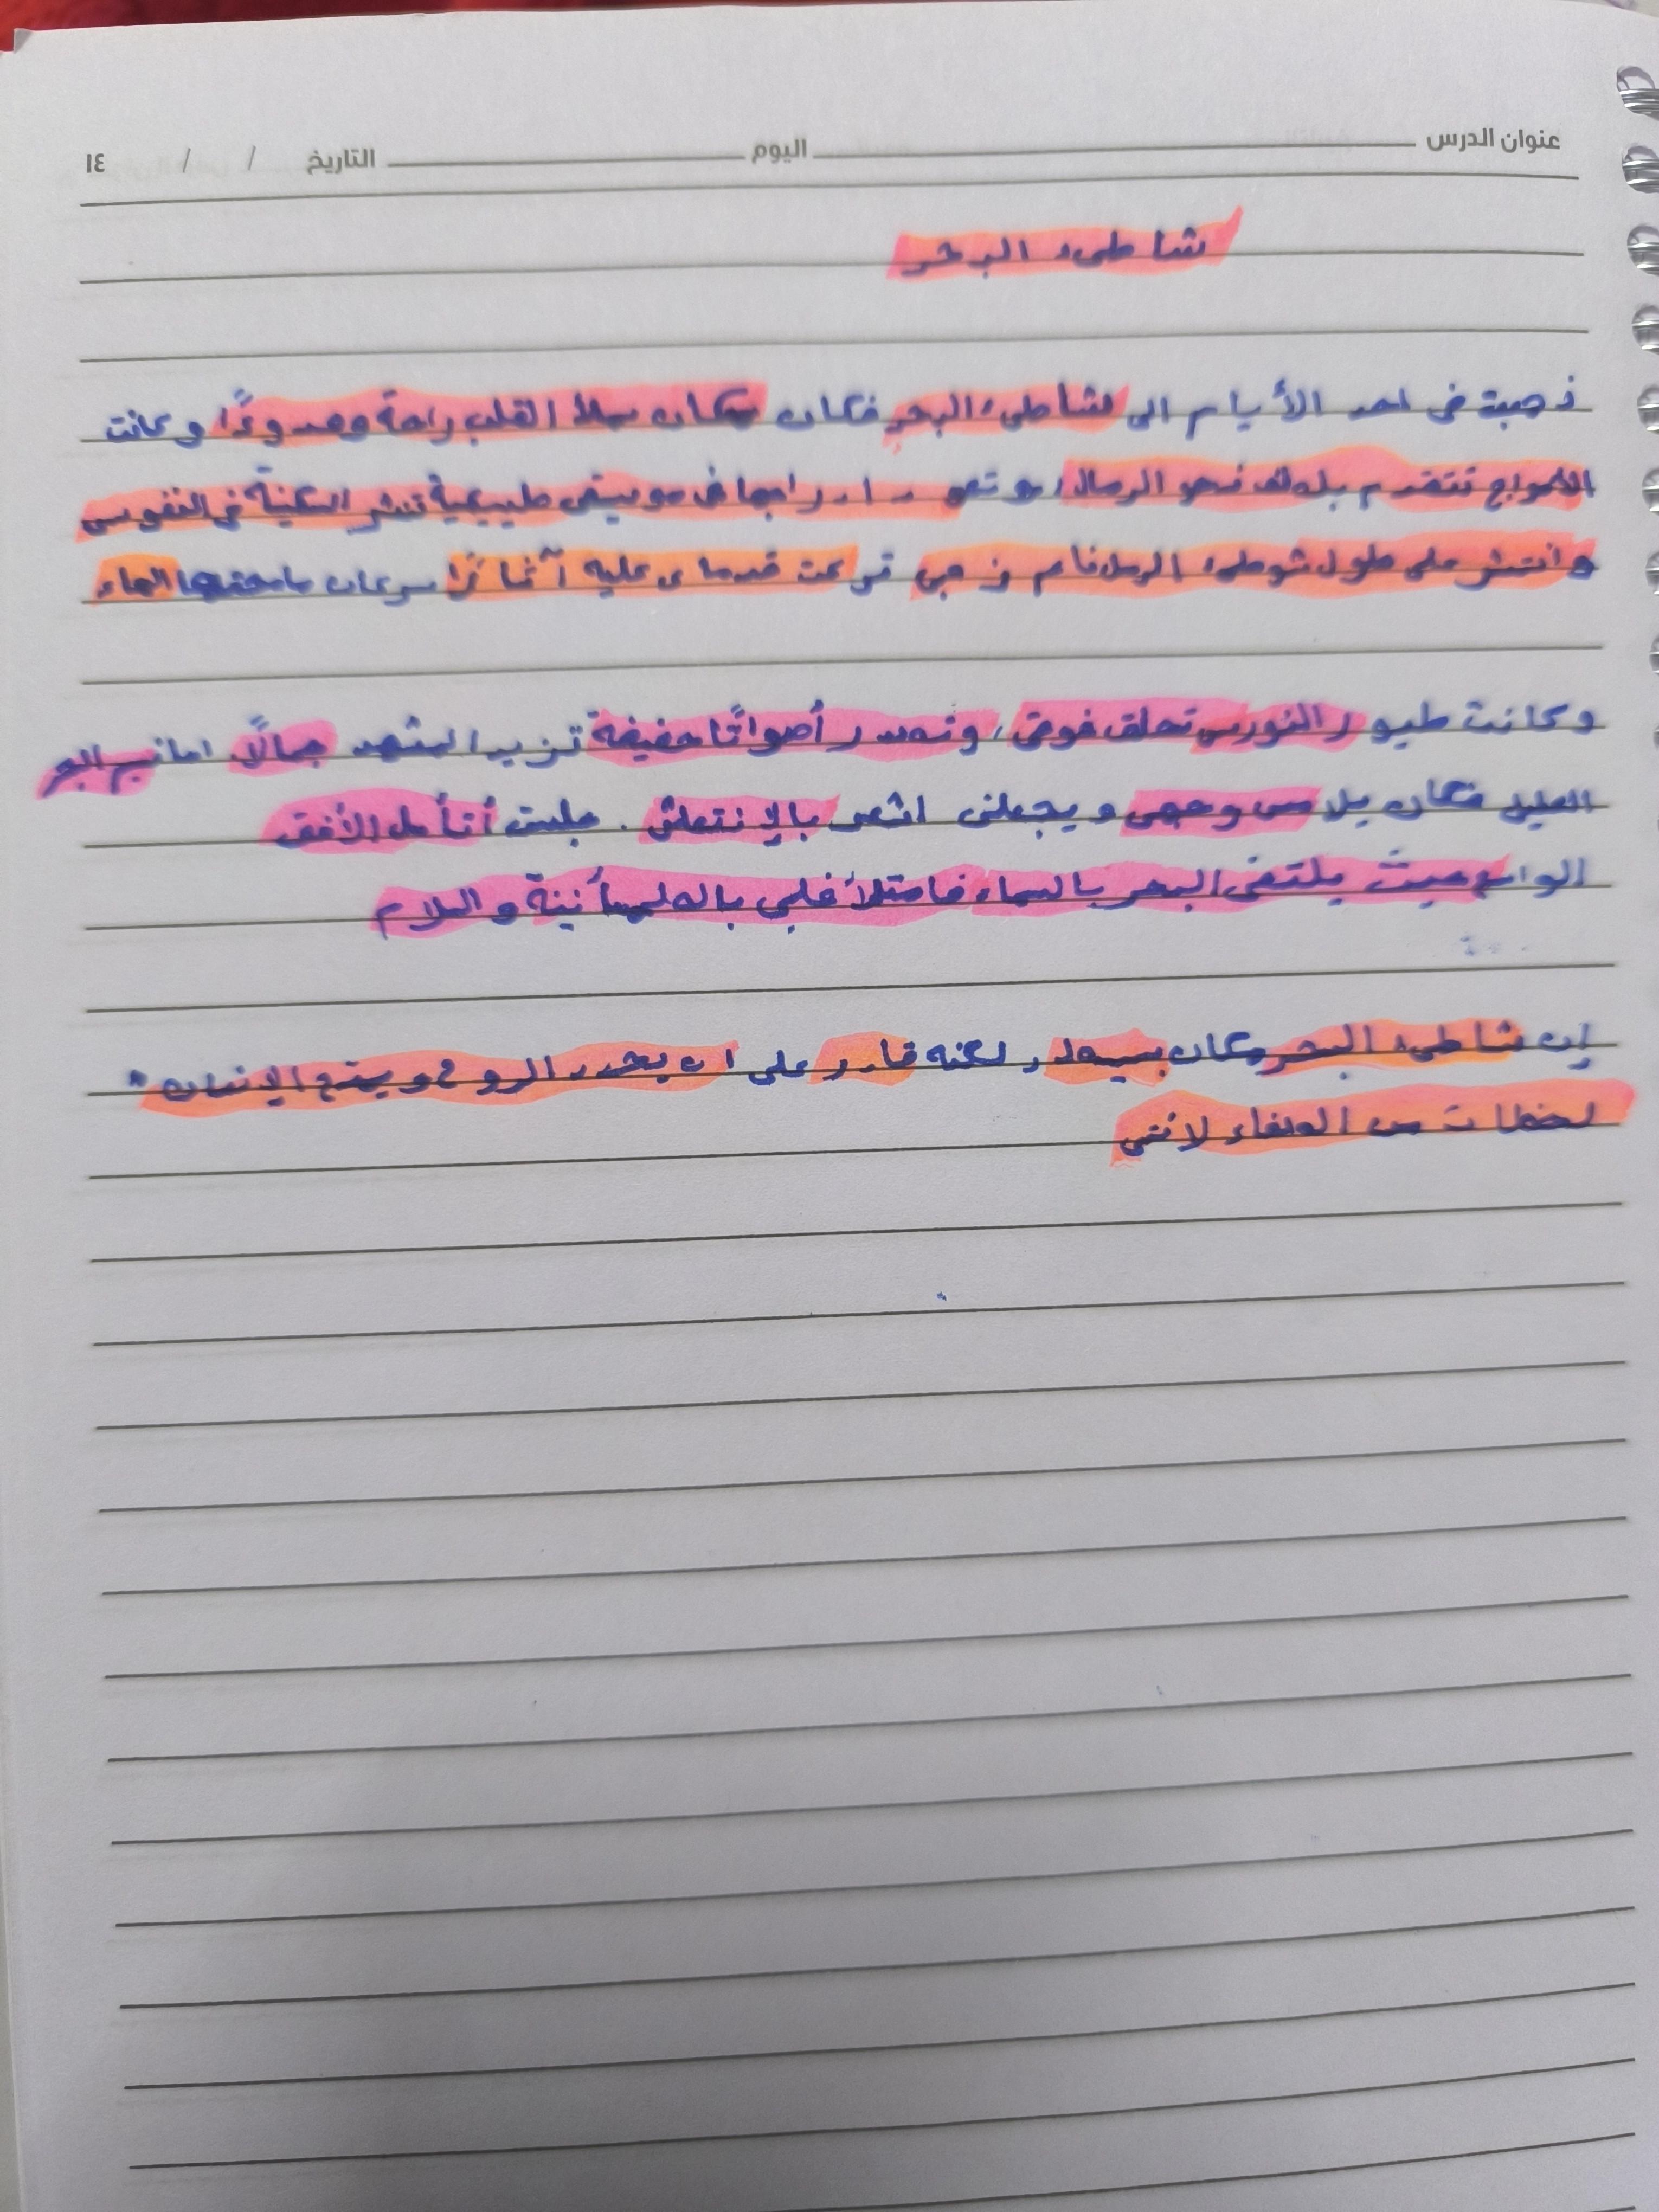 عنوان الدرس اليوم التاريخ / / ١٤
شاطىء البحر
ذهبت في احد الأيام الى شاطىء البحر فكان مكان يملأ القلب راحة وهدوءًا وكانت
الامواج تتقدم بلطف نحو الرمال، وتعود ادراجها في موسيقى طبيعية تنشر السكينة في النفوس
وانتشر على طول شوطىء الرمل ناعم ذهبي تركت قدماي عليه آثارًا سرعان مامحتها الماء
وكانت طيور النورس تحلق فوقي، وتصدر أصواتًا خفيفة تزيد المشهد جمالًا اما نسيم البحر
العليل فكان يلامس وجهي ويجعلني اشعر بالإنتعاش. جلست أتأمل الأفق
الواسع حيث يلتقي البحر بالسماء فامتلأ قلبي بالطمأنينة والسلام
إن شاطىء البحر مكان بسيط، لكنه قادر على ان يحرر الروح ويمنح الإنسان
لحظات من الصفاء لاتنسى